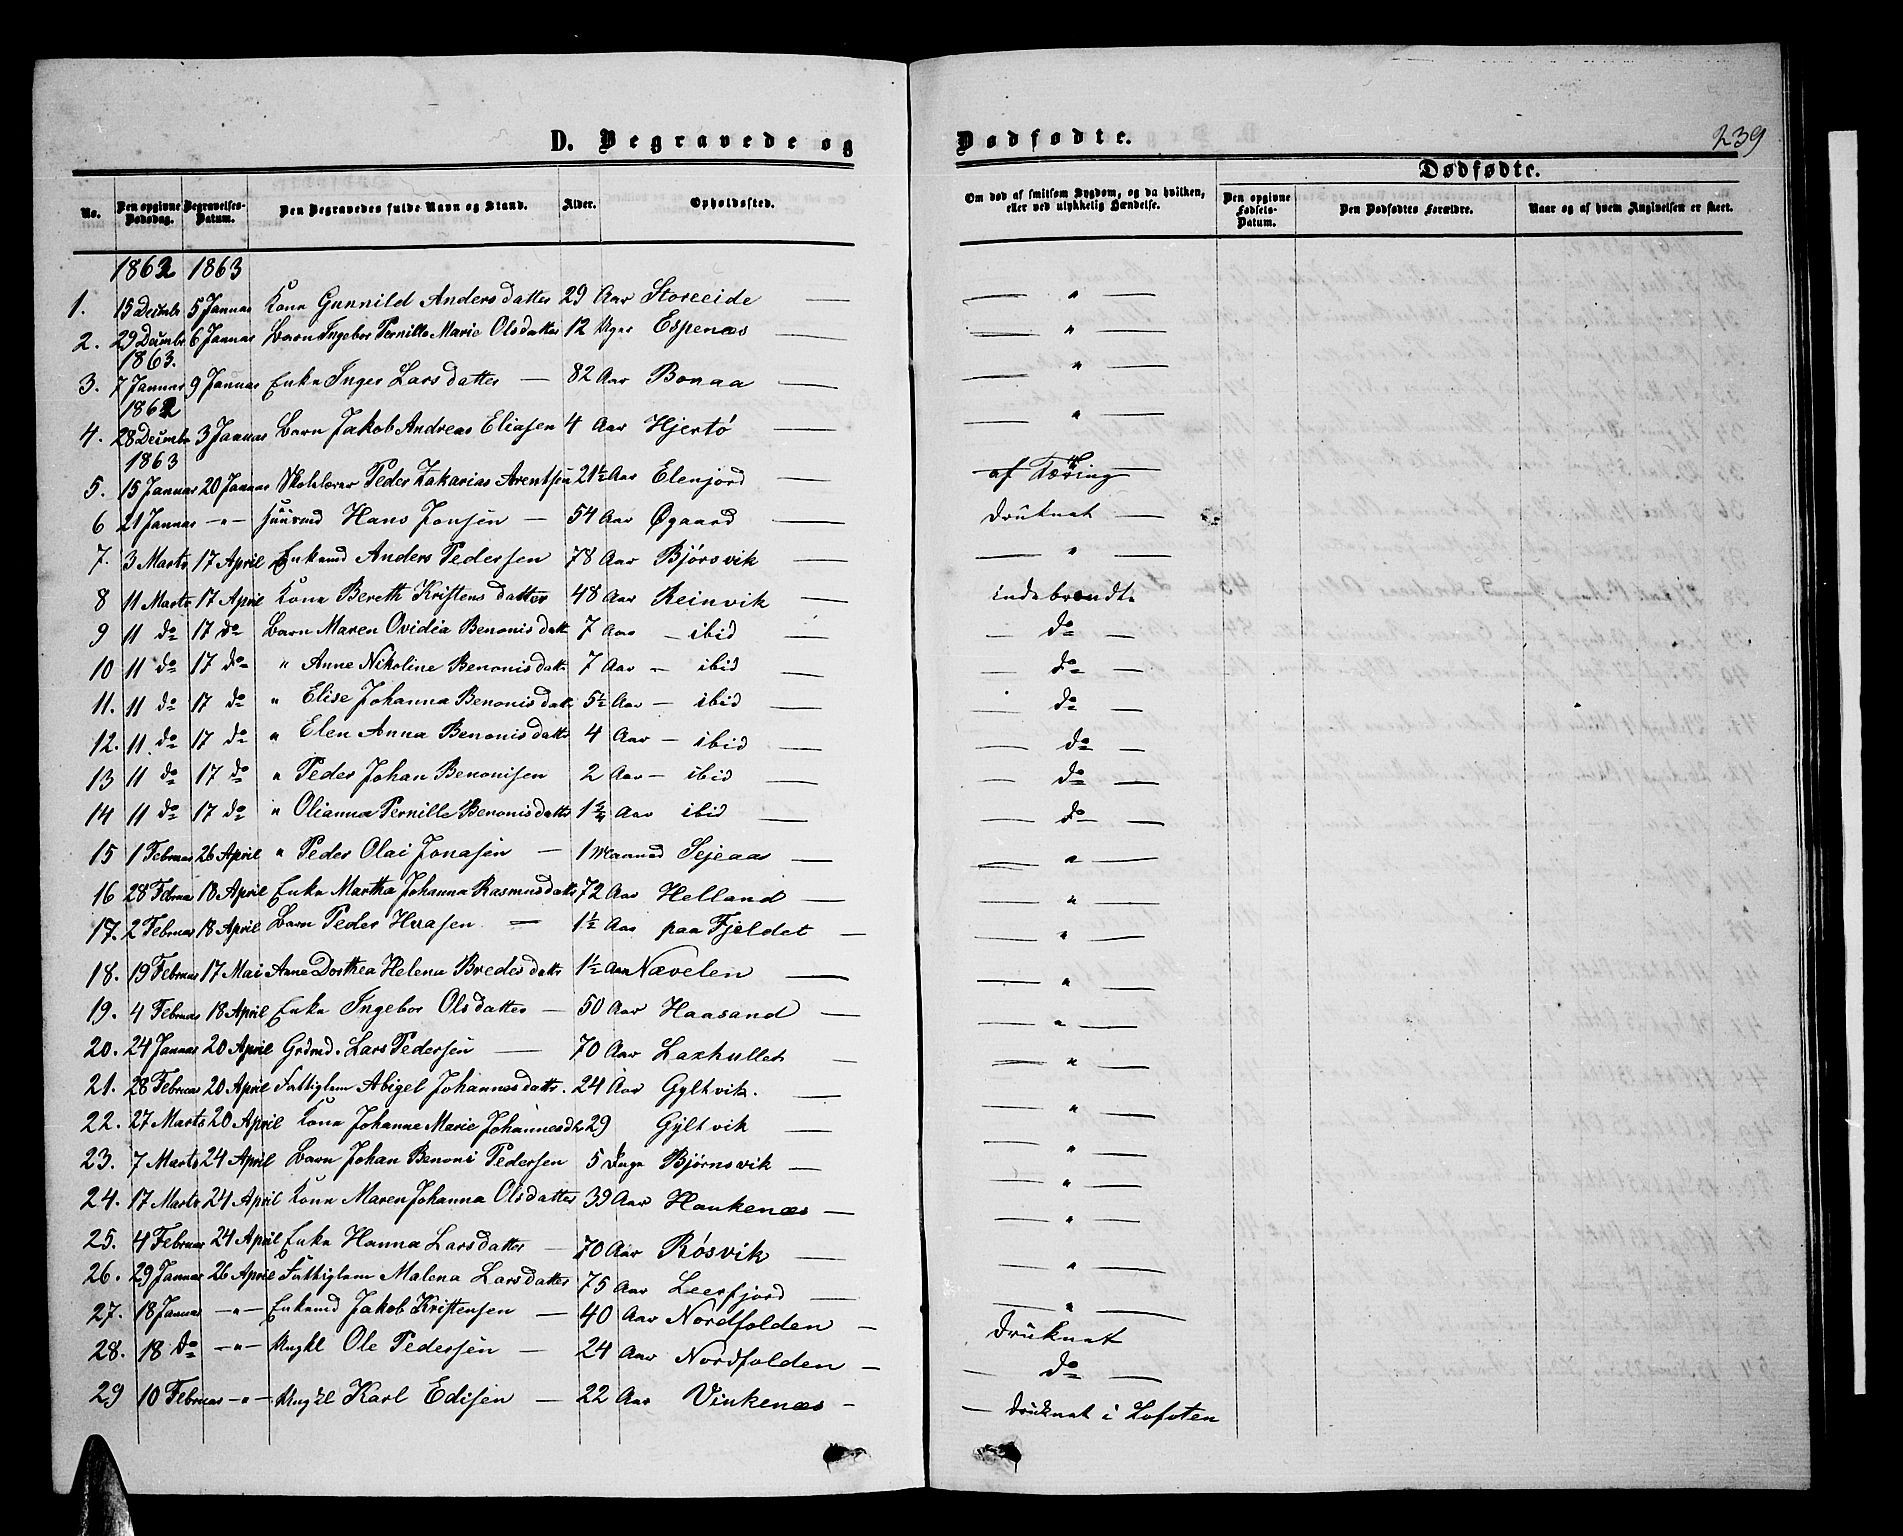 D. Begravede og Dødfødte. 239
No. Den opgivne Dødsdag. Begravelses-Datum. Den Begravedes fulde Navn og Stand. Alder. Opholdssted. Om død af smitsom Sygdom, og da hvilken, eller ved ulykkelig Hændelse. Dødfødte. Den opgivne Fødsels-Datum. Den Dødfødtes Forældre. Naar og af hvem Angivelsen er skeet.
1862 1863
1. 15 Decmbr 5 Januar Kone Gunnild Andersdatter 29 Aar Storeeide — " —
2. 29 Decmbr 6 Januar Barn Ingebor Pernille Marie Olsdatter 12 Uger Espenæs — " —
1863.
3. 7 Januar 9 Januar Enke Inger Larsdatter — 82 Aar Bonaa — " —
1862
4. 28 Decmbr 3 Januar Barn Jakob Andreas Eliasen 4 Aar Hjertø — " —
1863
5. 15 Januar 20 Januar Skolelærer Peder Zakarias Arentsen 21½ Aar Elenjord — af Tæring
6 21 Januar — " — Hans Jonsen — 54 Aar Øgaard — druknet —
7. 3 Marts 17 April Enkemd Anders Pedersen 78 Aar Bjørsvik — " —
8 11 Marts 17 April Kone Bereth Kristensdatter 48 Aar Reinvik — indebrændte
9 11 do 17 do Barn Maren Ovidia Benonisdatt 7 Aar — ibid — do —
10 11 do 17 do " Anne Nikoline Benonisdatt 7 Aar — ibid — do —
11. 11 do 17 do " Elise Johanna Benonisdatt 5½ Aar — ibid — do —
12. 11 do 17 do " Elen Anna Benonisdatter 4 Aar — ibid — do —
13 11 do 17 do " Peder Johan Benonisen 2 Aar — ibid — do —
14 11 do 17 do " Olianna Pernille Benonisdatter 1¾ Aar ibid — do —
15 1 Februar 26 April " Peder Olai Jonasen — 1 Maaned Sejeaas — " —
16 28 Februar 18 April Enke Martha Johanna Rasmusdatter 72 Aar Helland — " —
17. 2 Februar 18 April Barn Peder Haasen — 1½ Aar paa Fjeldet — " —
18. 19 Februar 17 Mai Anne Dorthea Helena Bredesdatter 1½ Aar Nævelen — " —
19. 4 Februar 18 April Enke Ingebor Olsdatter — 50 Aar Haasand — " —
20. 24 Januar 20 April Grdmd. Lars Pedersen — 70 Aar Laxhullet — " —
21. 28 Februar 20 April Fattiglem Abigel Johannesdatter. 24 Aar Gyltvik. — " —
22. 27 Marts 20 April Kone Johanne Marie Johannesdtr 29 Gyltvik — " —
23. 7 Marts 24 April Barn Johan Benoni Pedersen 5 Dage Bjørnsvik — " —
24. 17 Marts 24 April Kone Maren Johanna Olsdatter 39 Aar Haukenæs — " —
25. 4 Februar 24 April Enke Hanna Larsdatter — 70 Aar Røsvik — " —
26. 29 Januar 26 April Fattiglem Malena Larsdatter 75 Aar Leerfjord — " —
27. 18 Januar — " — Enkemd Jakob Kristensen — 40 Aar Nordfolden — druknet
28. 18 do — " — Ungkl Ole Pedersen — 24 Aar Nordfolden — do —
29 10 Februar — " — Ungkl Karl Edisen — 22 Aar Vinkenæs — druknet i Lofoten